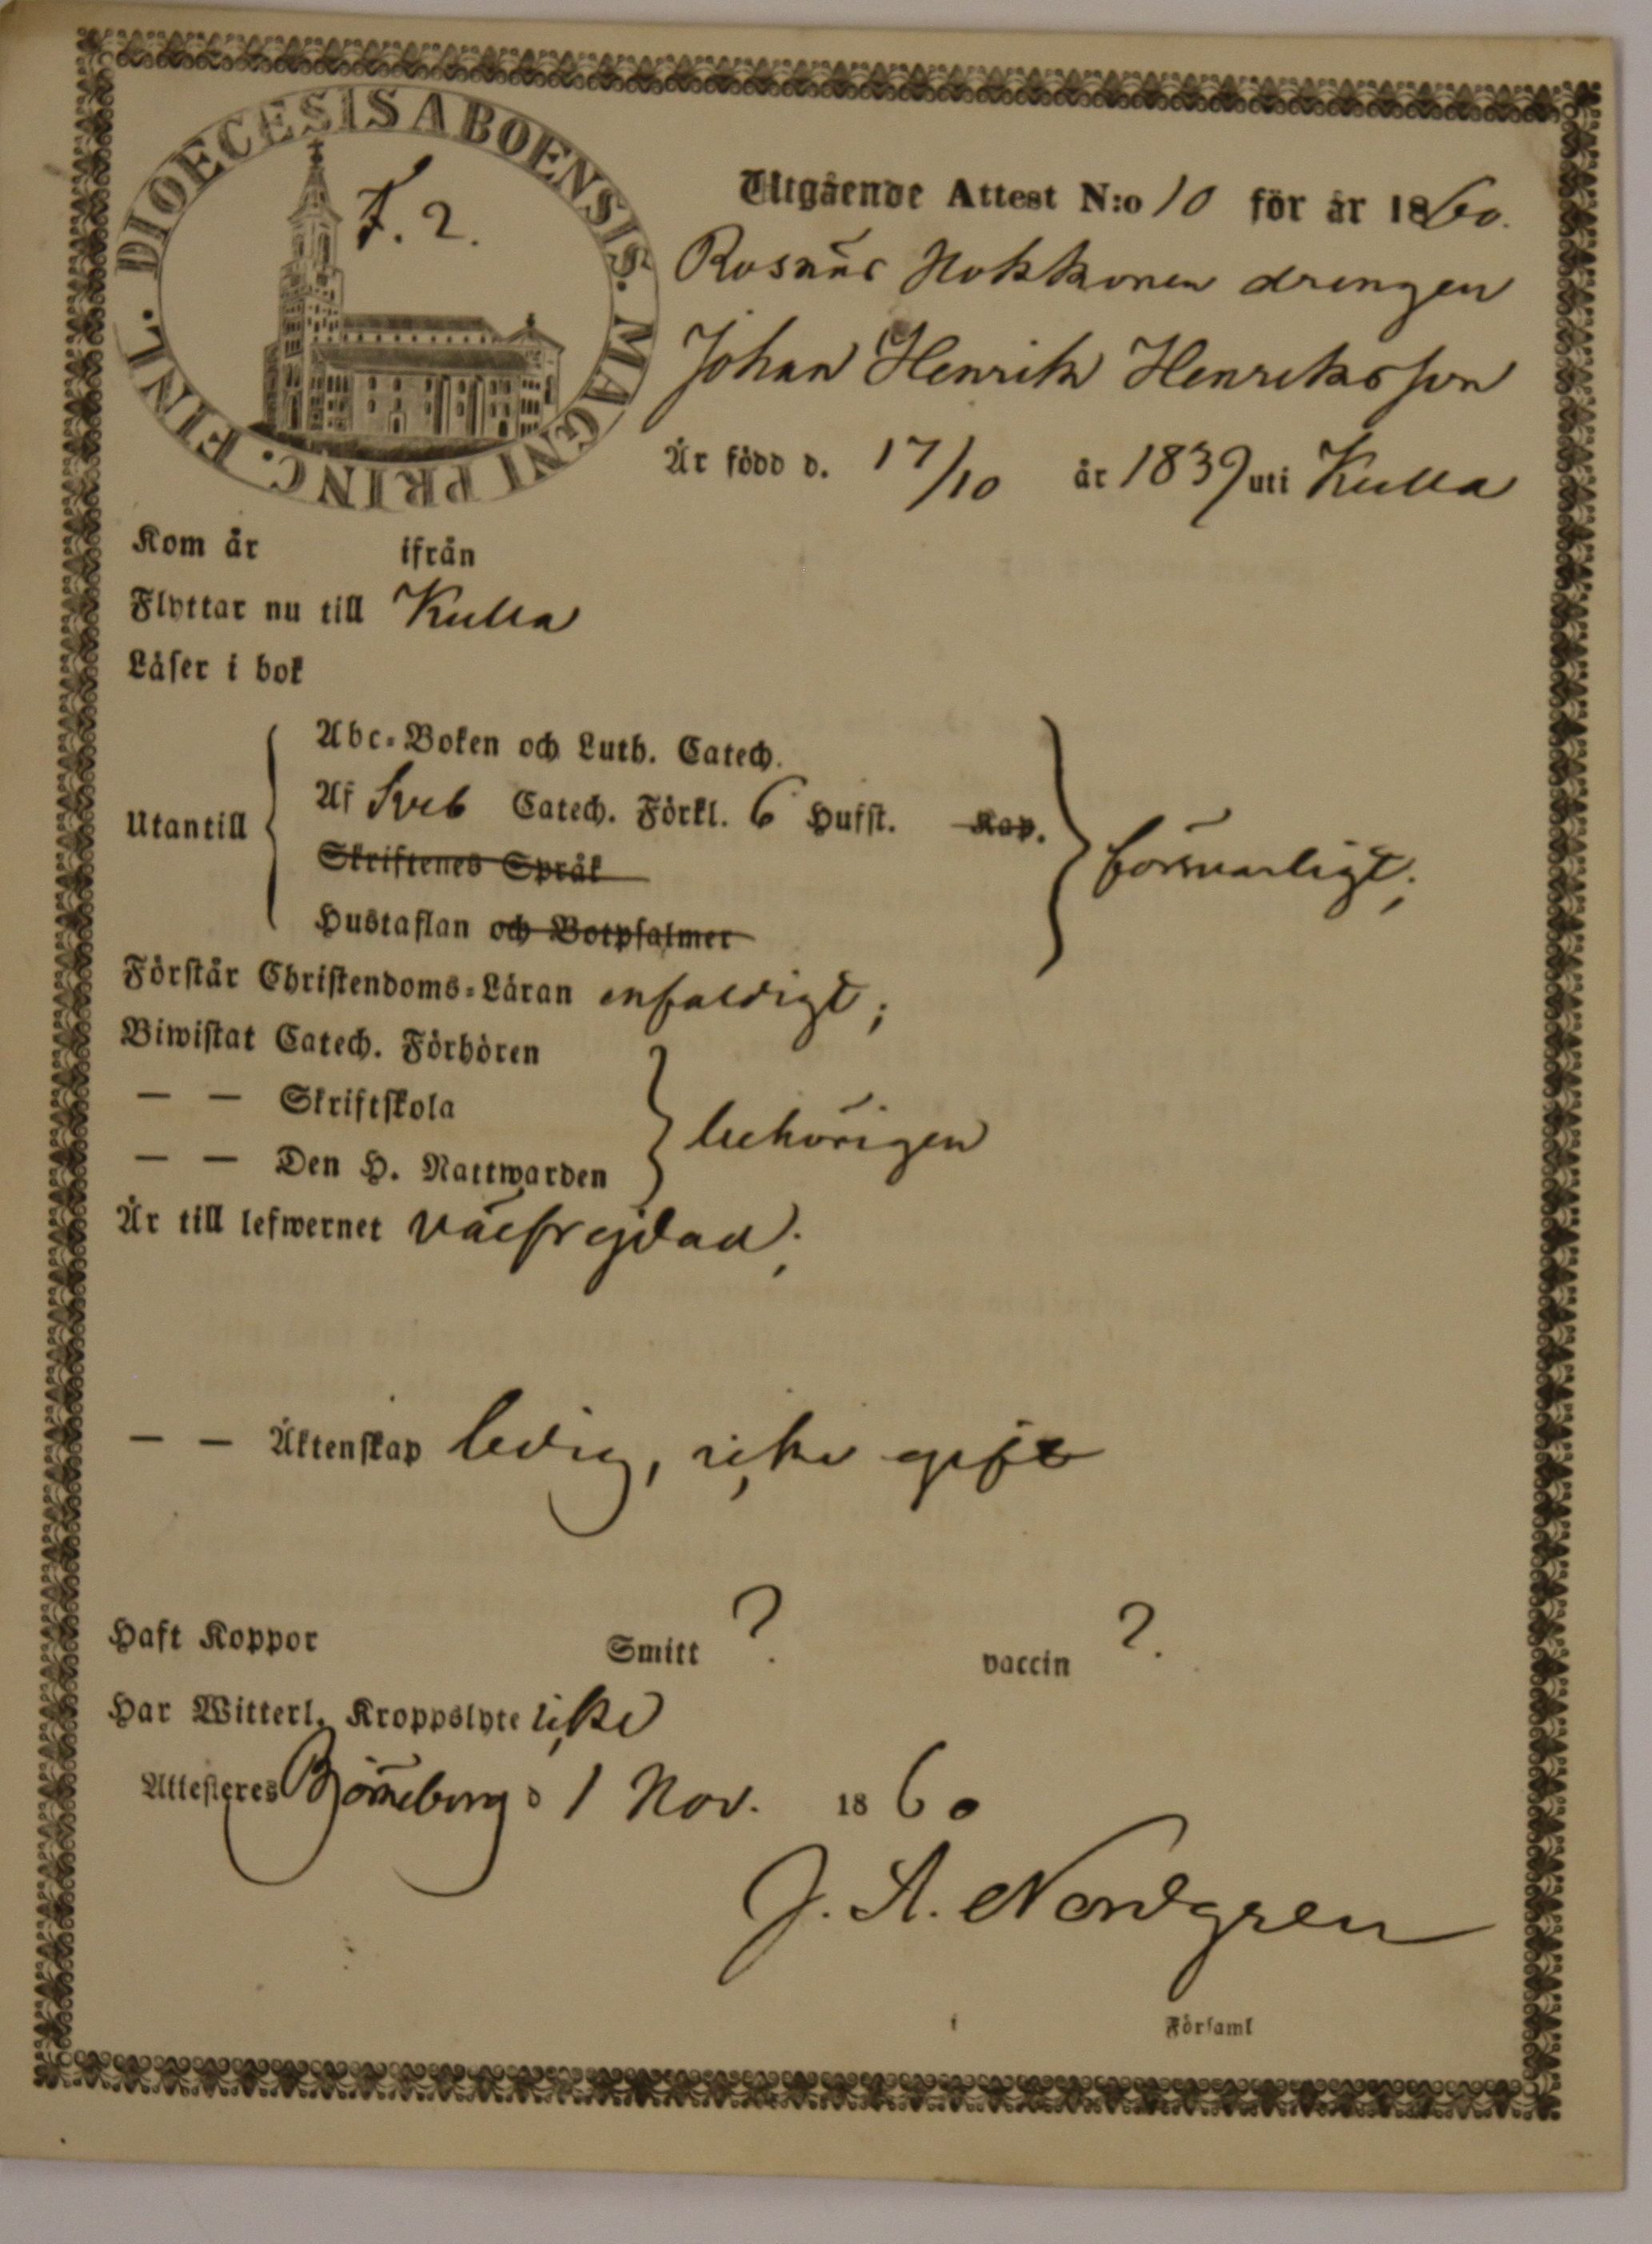 DIOECESIS ABOENSIS. MAGNI PRINC. FINL.
F. 2.
Utgående Attest N:o 10 för år 1860.
Rosnäs Nokkonen drengen
Johan Henrik Henriksson
Är född d. 17/10 år 1839 uti Kulla
Kom år ifrån
Flyttar nu till Kulla
Läser i bok
Abc-Boken och Luth. Catech.
Utantill Af Sveb Catech. Förkl. 6 Hufst. Kap. försvarligt;
Skriftenes Språk
Hustaflan och Botpsalmer
Förstår Christendoms-Läran enfaldigt;
Biwistat Catech. Förhören
— — Skriftskola behörigen
— — Den H. Nattwarden
Är till lefwernet välfrejdad;
— — Äktenskap ledig, icke gift
Haft Koppor Smitt ? vaccin ?.
Har Witterl. Kroppslyte icke
Attesteres Björneborg d 1 Nov. 1860
J. A. Nordgren
i Församl